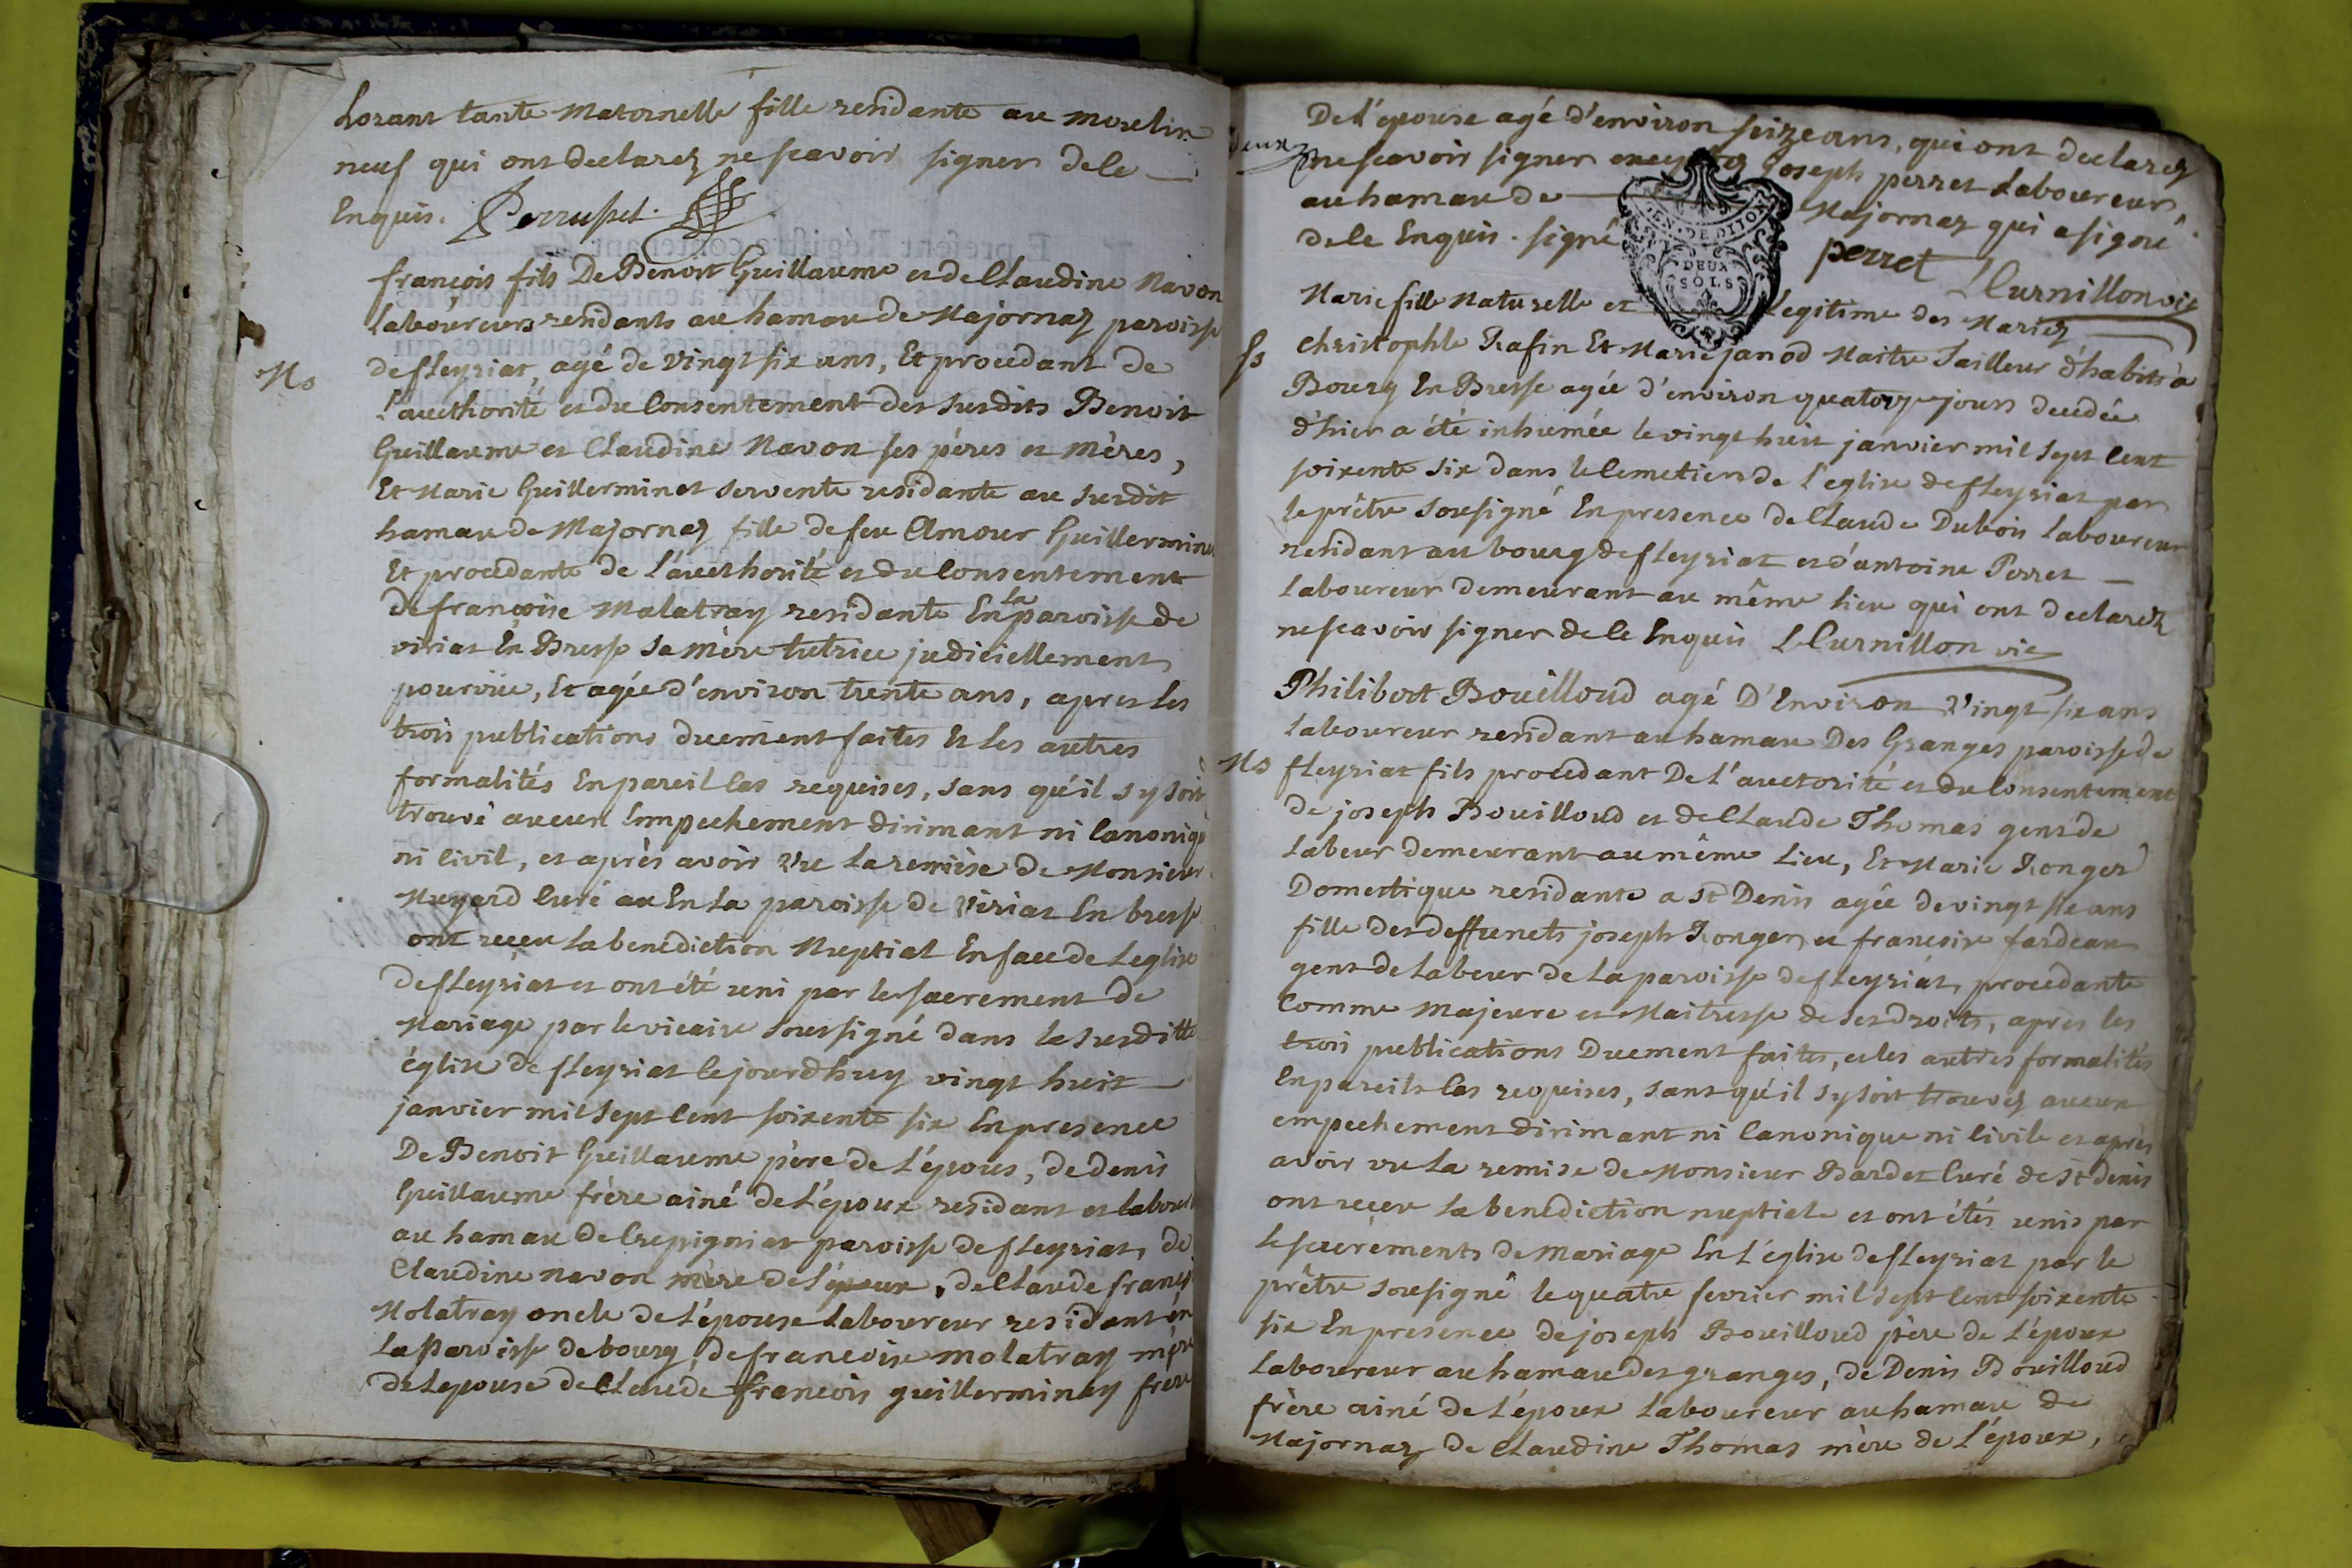 Lorant tante Maternelle fille residante au moulin
neuf qui ont declarez ne scavoir signer de ce
Enquis. Perruset.
françois fils De Benoit Guillaume et de Claudine Navon
Laboureurs residants au hamau de Majornaz paroisse
Ms
de fleyriat, agé de vingt six ans, Et procedant de
l'aucthorité et du Consentement des susdits Benoit
Guillaume et Claudine Navon ses pères et Mères,
Et Marie Guillerminet servente residante au susdit
hamau de Majornaz fille de feu Amour Guillermine
Et procedante de l'aucthorité et du Consentement
de françoise Malatray residante En la paroisse de
viriat En Bresse sa mère tutrice judiciellement
pourvüe, Et agée d'environ trente ans, apres les
trois publications duement faites Et les autres
formalités En pareil Cas requises, sans qu'il s y soit
trouvé aucun Empechement dirimant ni Canoniq
ni Civil, et après avoir Vu la remise de Monsieur
Curé au En La paroisse de Viriat En bresse
ont receu La benediction Nuptial En face de Leglise
de fleyriat et ont été uni par le sacrement de
Mariage par le vicaire soussigné dans la susditte
église de fleyriat le jourdhuy vingt huit
janvier mil sept Cent soixente six En presence
De Benoit Guillaume père de L'épous, de denis
Guillaume frère ainé de L'époux residant et labour
au hamau de Crepigniat paroisse de fleyriat, de
Claudine navon mère de l'époux, de Claude franç
Molatray oncle de L'épouse Laboureur residant en
La Paroisse de bourg, de francoise molatray mère
de Lepouse de Claude francois guillerminey frere
De l'épouse agé d'environ seize ans, qui ont declarez
deux
ne scavoir signer exceptez Joseph perret Laboureur
au hamau de Majornaz qui a signé
de ce Enquis. signé perret LCurnillon vic
GEN. DE DIJON
DEUX
SOLS
Marie fille Naturelle et Legitime des Mariez
Ss
christophle Rafin Et Marie janod Maitre Tailleur d'habits a
Bourg En Bresse agée d'environ quatorze jours decedée
d'hier a été inhumée le vingt huit janvier mil sept Cent
soixente six dans le Cemetiere de l'eglise de fleyriat par
le prêtre sousigné En presence de Claude Dubois Laboureur
residant au bourg de fleyriat et d'antoine Perret
Laboureur demeurant au même lieu qui ont declarez
ne scavoir signer de Ce Enquis LCurnillon vic
Philibert Bouilloud agé D'Environ Vingt six ans
Laboureur residant au hamau Des Granges paroisse de
Ms
fleyriat fils procedant De L'auctorité et du Consentement
de joseph Bouilloud et de Claude Thomas gens de
Labeur demeurant au même Lieu, Et Marie Ronger
Domestique residante a St Denis agée de vingt six ans
fille des deffunets joseph Ronger et francoise fardeau
gens de Labeur de La paroisse de fleyriat, procedante
Comme Majeure et Maitresse de ses droits, après les
trois publications Duement faites, et les autres formalités
En pareils Cas requises, sans qu'il s y soit trouvez aucun
empechement dirimant ni Canonique ni Civile et après
avoir vu La remise de Monsieur Bardet Curé de St denis
ont receu La benediction nuptiale et ont étés unis par
Le sacrements de mariage En L'église de fleyriat par le
prêtre sousigné le quatre fevrier mil sept Cent soixente
six En presence de joseph Bouilloud père de L'époux
Laboureur au hamau des granges, de Denis Bouilloud
frère ainé de L'époux Laboureur au hamau de
Majornaz de Claudine Thomas mère de l'époux,